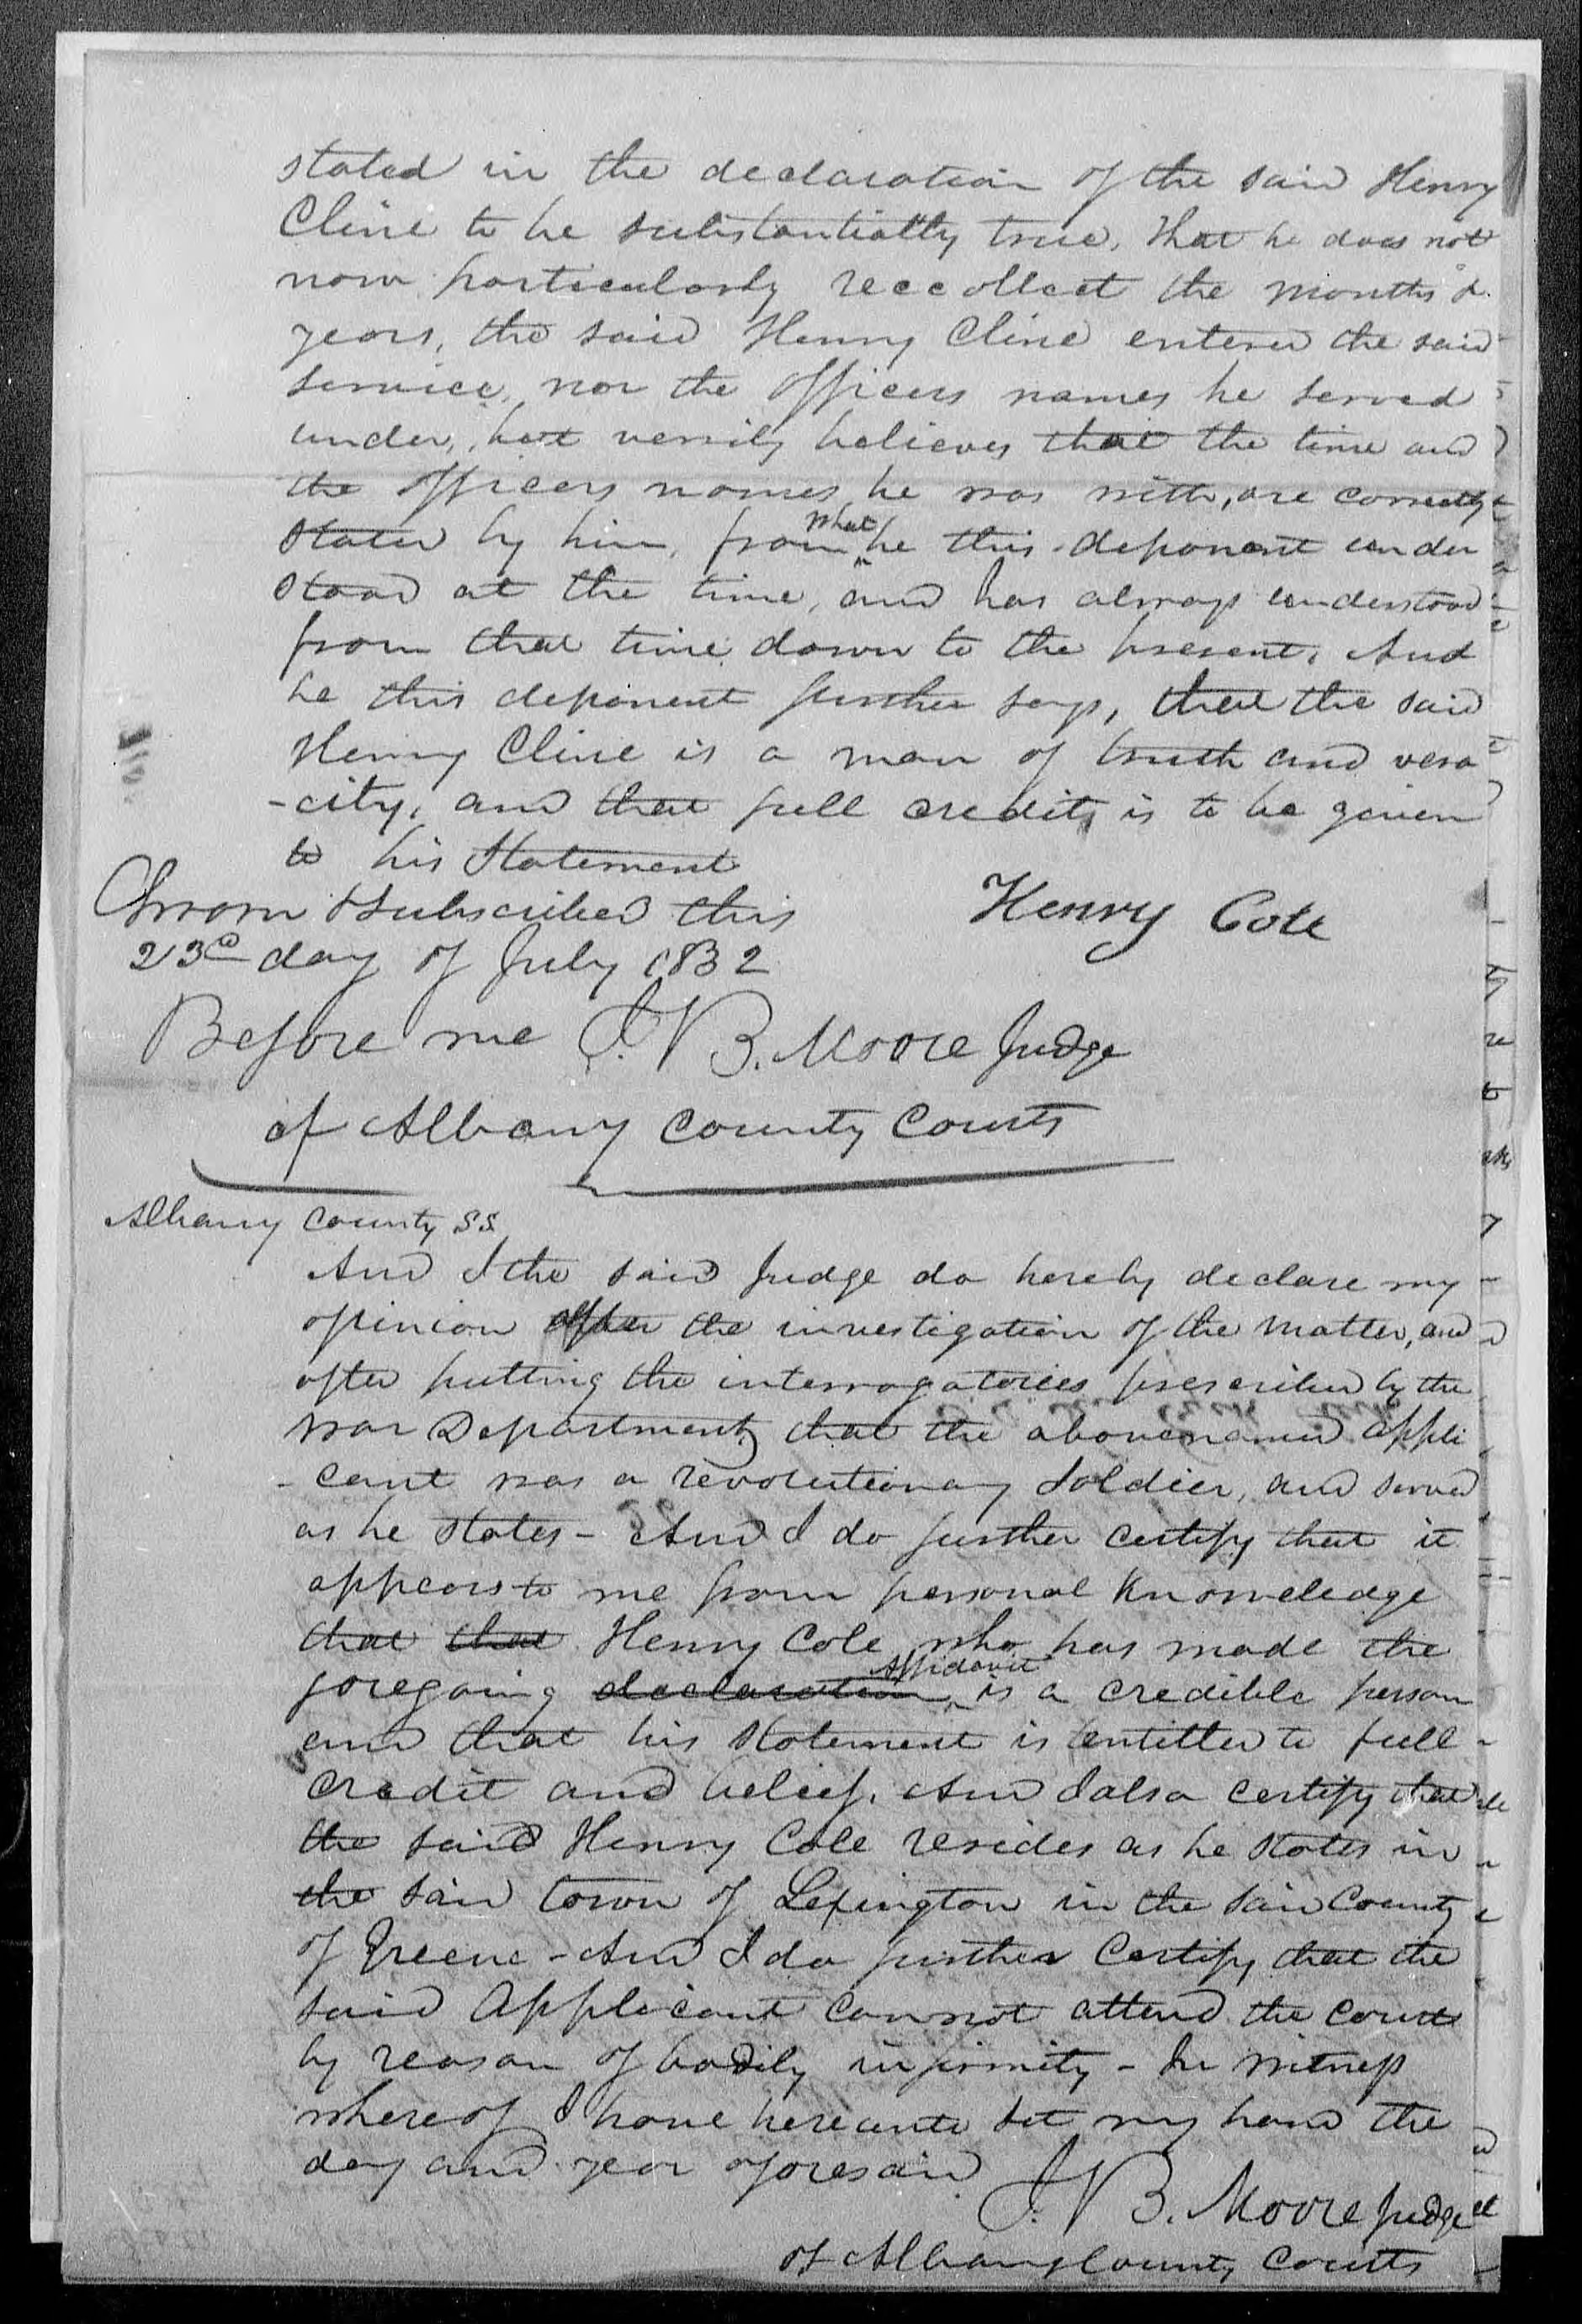 stated in the declaration of the said Henry
Cline to be substantially true, that he does not
now particularly reccollect the months &
years, the said Henry Cline entered the said
service, nor the officers names he served
under, but verrily believes that the time and
the officers names he was with, are correctly
stated by him, from what he this deponent under
stood at the time, and has always understood
from that time down to the present. And
he this deponent further says, that the said
Henry Cline is a man of truth and vera
-city, and that full credit is to be given
to his Statement
Sworn & Subscribed this
Henry Cole
23d day of July 1832
Before me J. V B. Moore Judge
of Albany County Courts
Albany County S.S.
And I the said Judge do hereby declare my
opinion after the investigation of the matter, and
after putting the interrogatories prescribed by the
war Department, that the abovenamed appli
-cant was a revolutionary Soldier, and served
as he states - And I do further certify that it
appears to me from personal Knoweledge
that that Henry Cole who has made the
foregoing declaration Affidavit is a credible person
and that his statement is entitled to full
credit and belief. And I also certify that
the said Henry Cole resides as he states in
the said town of Lexington in the said County
of Greene - And I do further Certify, that the
said Applicant cannot attend the court
by reason of bodily infirmity - In witness
whereof I have hereunto set my hand the
day and year aforesaid
J. V B. Moore Judge
of Albany County Courts